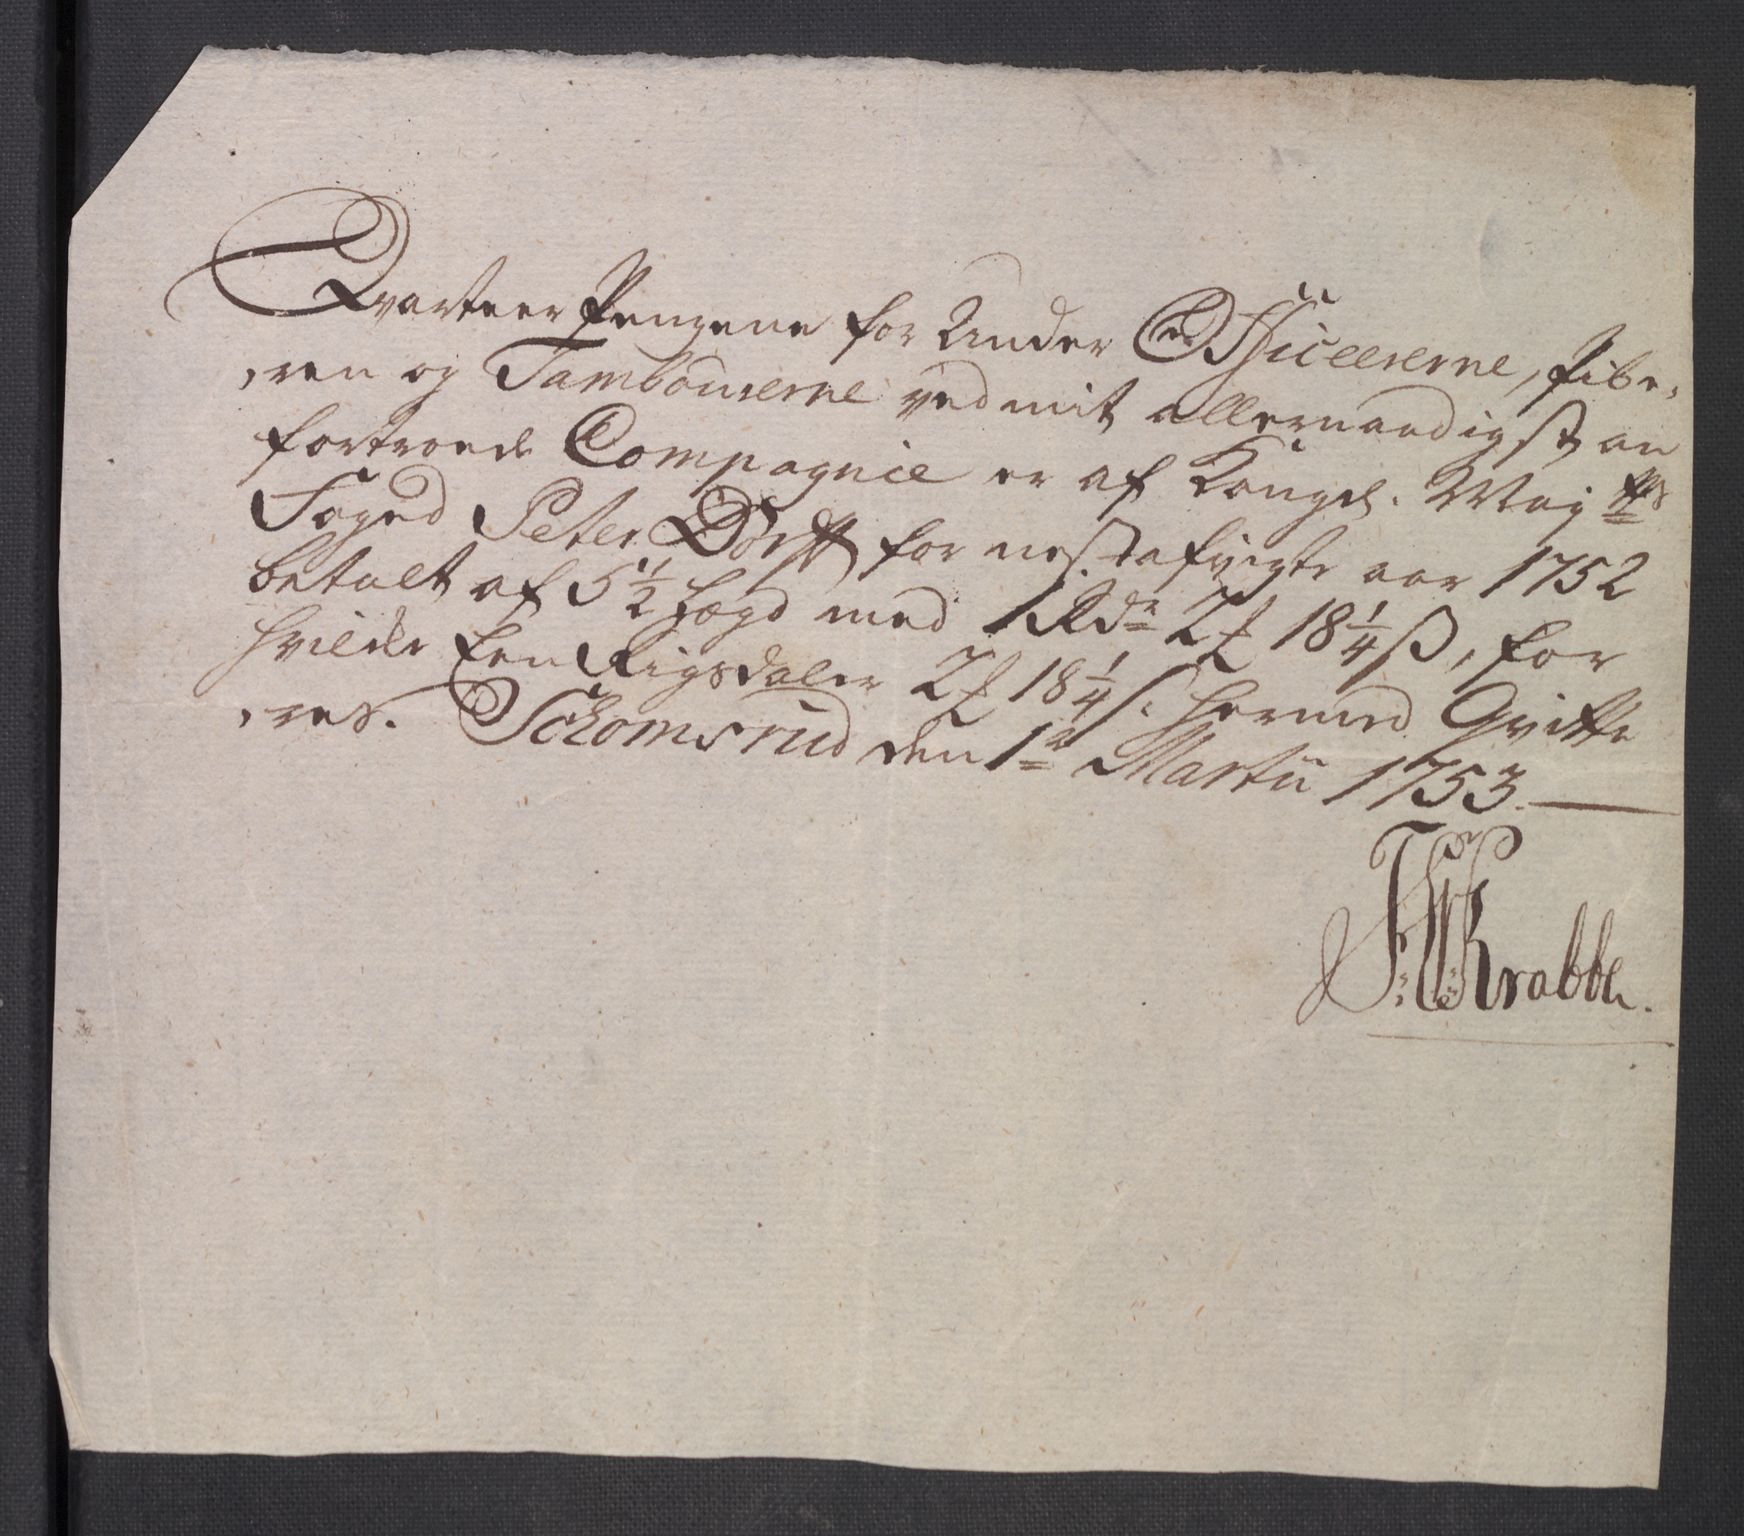 Qvarteer Pengene for Under Officeererne, Pibe-
ren og Tambourerne ved mit allernaadigst an
fortroede Compagnie er af Kongel. May.tts
Foged Peter Dorff for nestafvigte aar 1752
betalt af 5 1/2 Lægd med 1 Rdr 2 f 18 1/4 ß, for
hvilke Een Rigsdaler 2 f 18 1/4 ß hermed Qvitte
res. Schomsrud den 1te Martii 1753.
F: W: Krabbe.